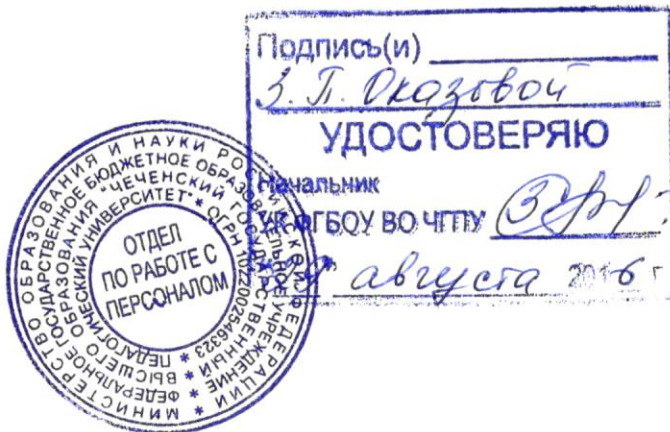 Подпись(и)
З. П. Оказовой
УДОСТОВЕРЯЮ
Начальник
УК ФГБОУ ВО ЧГПУ
августа 2016 г
МИНИСТЕРСТВО ОБРАЗОВАНИЯ И НАУКИ РОССИЙСКОЙ ФЕДЕРАЦИИ *
ФЕДЕРАЛЬНОЕ ГОСУДАРСТВЕННОЕ БЮДЖЕТНОЕ ОБРАЗОВАТЕЛЬНОЕ УЧРЕЖДЕНИЕ *
ВЫСШЕГО ОБРАЗОВАНИЯ "ЧЕЧЕНСКИЙ ГОСУДАРСТВЕННЫЙ *
ПЕДАГОГИЧЕСКИЙ УНИВЕРСИТЕТ" * ОГРН 1022002546323 *
ОТДЕЛ
ПО РАБОТЕ С
ПЕРСОНАЛОМ